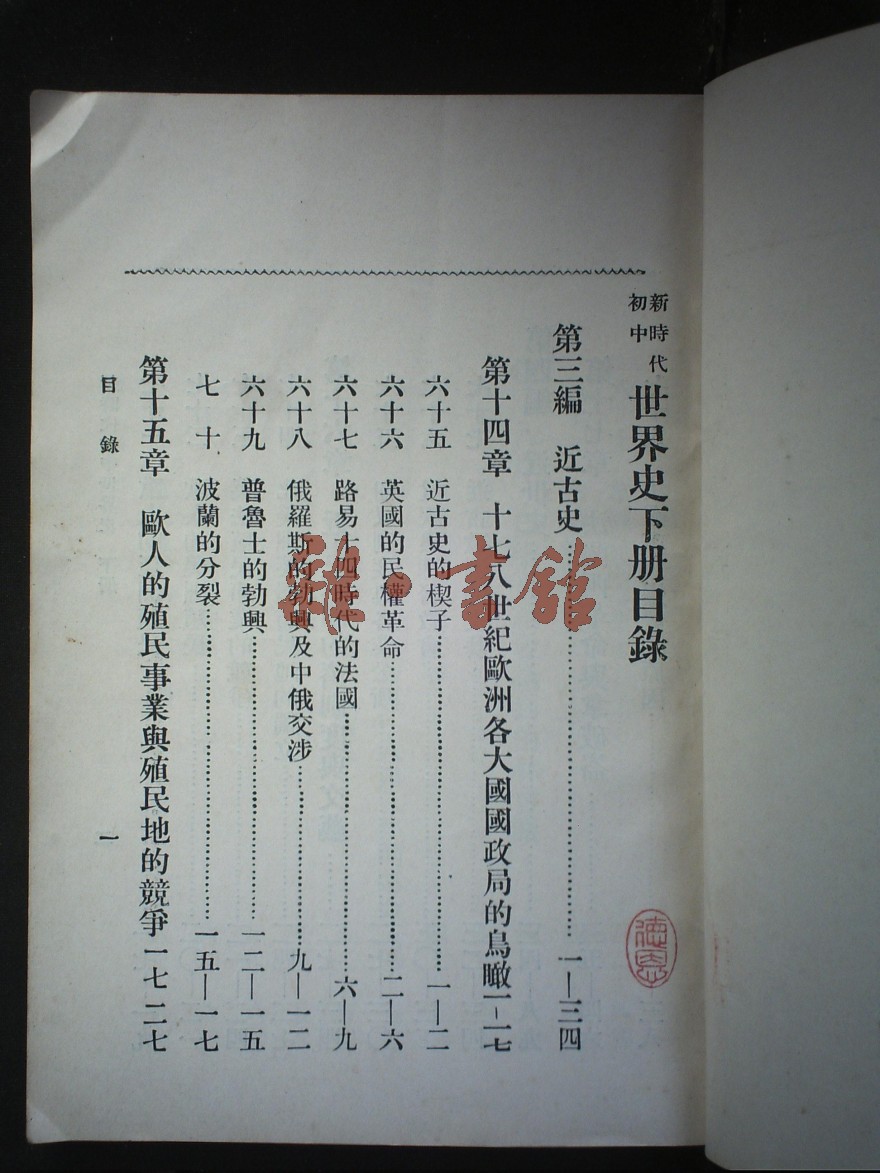 新時代
初中
世界史下册目錄
第三編 近古史……一—三四
第十四章 十七八世紀歐洲各大國國政局的鳥瞰一-一七
六十五 近古史的楔子……一—二
六十六 英國的民權革命……二—六
六十七 路易十四時代的法國……六—九
六十八 俄羅斯的勃興及中俄交涉……九—一二
六十九 普魯士的勃興……一二—一五
七十 波蘭的分裂……一五—一七
第十五章 歐人的殖民事業與殖民地的競爭一七-二七
目錄 一
書館